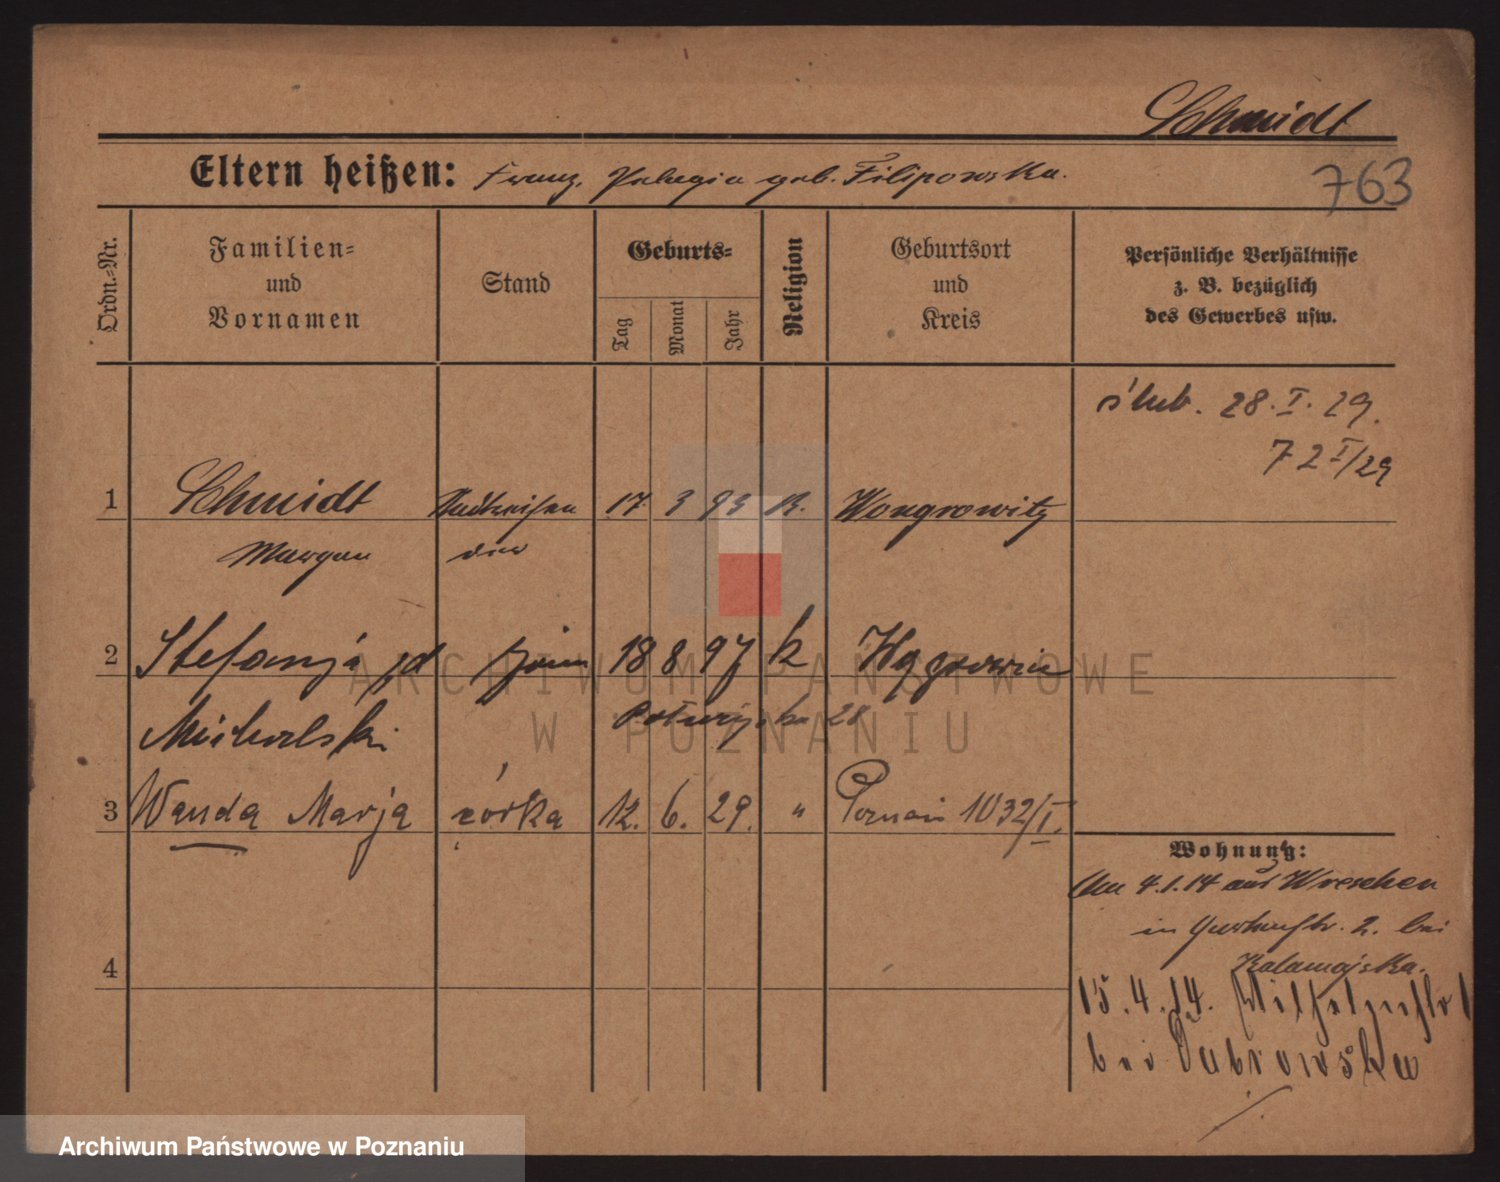 Schmidt
Eltern heißen: Franz, Pelagia geb. Filipowska.
763
Ordn.-Nr.
Familien=
und
Vornamen
Stand
Geburts=
Tag
Monat
Jahr
Religion
Geburtsort
und
Kreis
Persönliche Verhältnisse
z. B. bezüglich
des Gewerbes usw.
ślub. 28. I. 29.
72 I/29
1 Schmidt 17 3 93 K. Wongrowitz
Maryan
2 Stefanja żona 18 8 97 k Wągrowiec
Michalski 28
3 Wanda Marja córka 12. 6. 29. " Poznań 1032/I.
Wohnung:
Am 4.1.14 aus Wreschen
in Gartenstr. 2. bei
Kalamajska.
4
15.4.14. Wilhelmstr 1
bei Dabrowska
ARCHIWUM PAŃSTWOWE
W POZNANIU
Archiwum Państwowe w Poznaniu